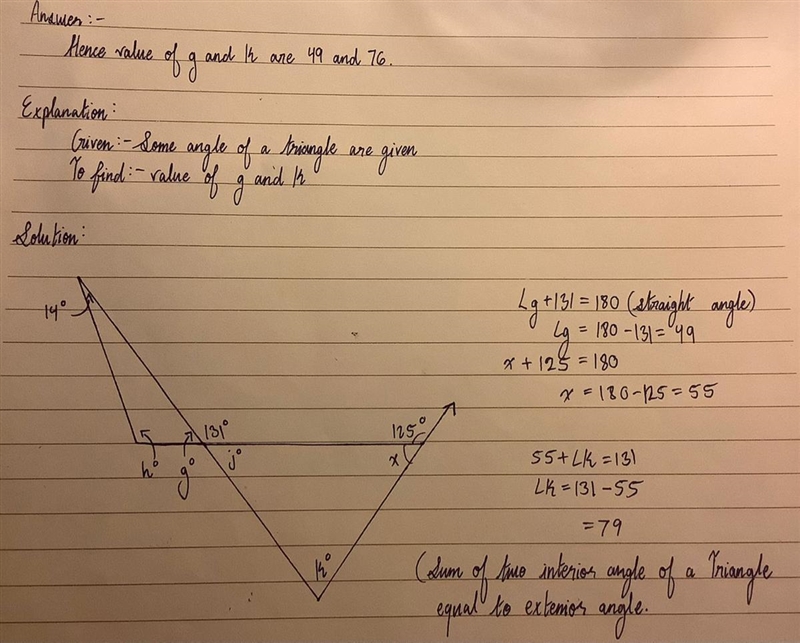 Answer:-
Hence value of g and k are 49 and 76.
Explanation:
Given:- Some angle of a triangle are given
To find:- value of g and k
Solution:
14°
131°
125°
h°
g°
j°
x
k°
∠g + 131 = 180 (straight angle)
∠g = 180 - 131 = 49
x + 125 = 180
x = 180 - 125 = 55
55 + ∠k = 131
∠k = 131 - 55
= 79
(Sum of two interior angle of a Triangle
equal to exterior angle.